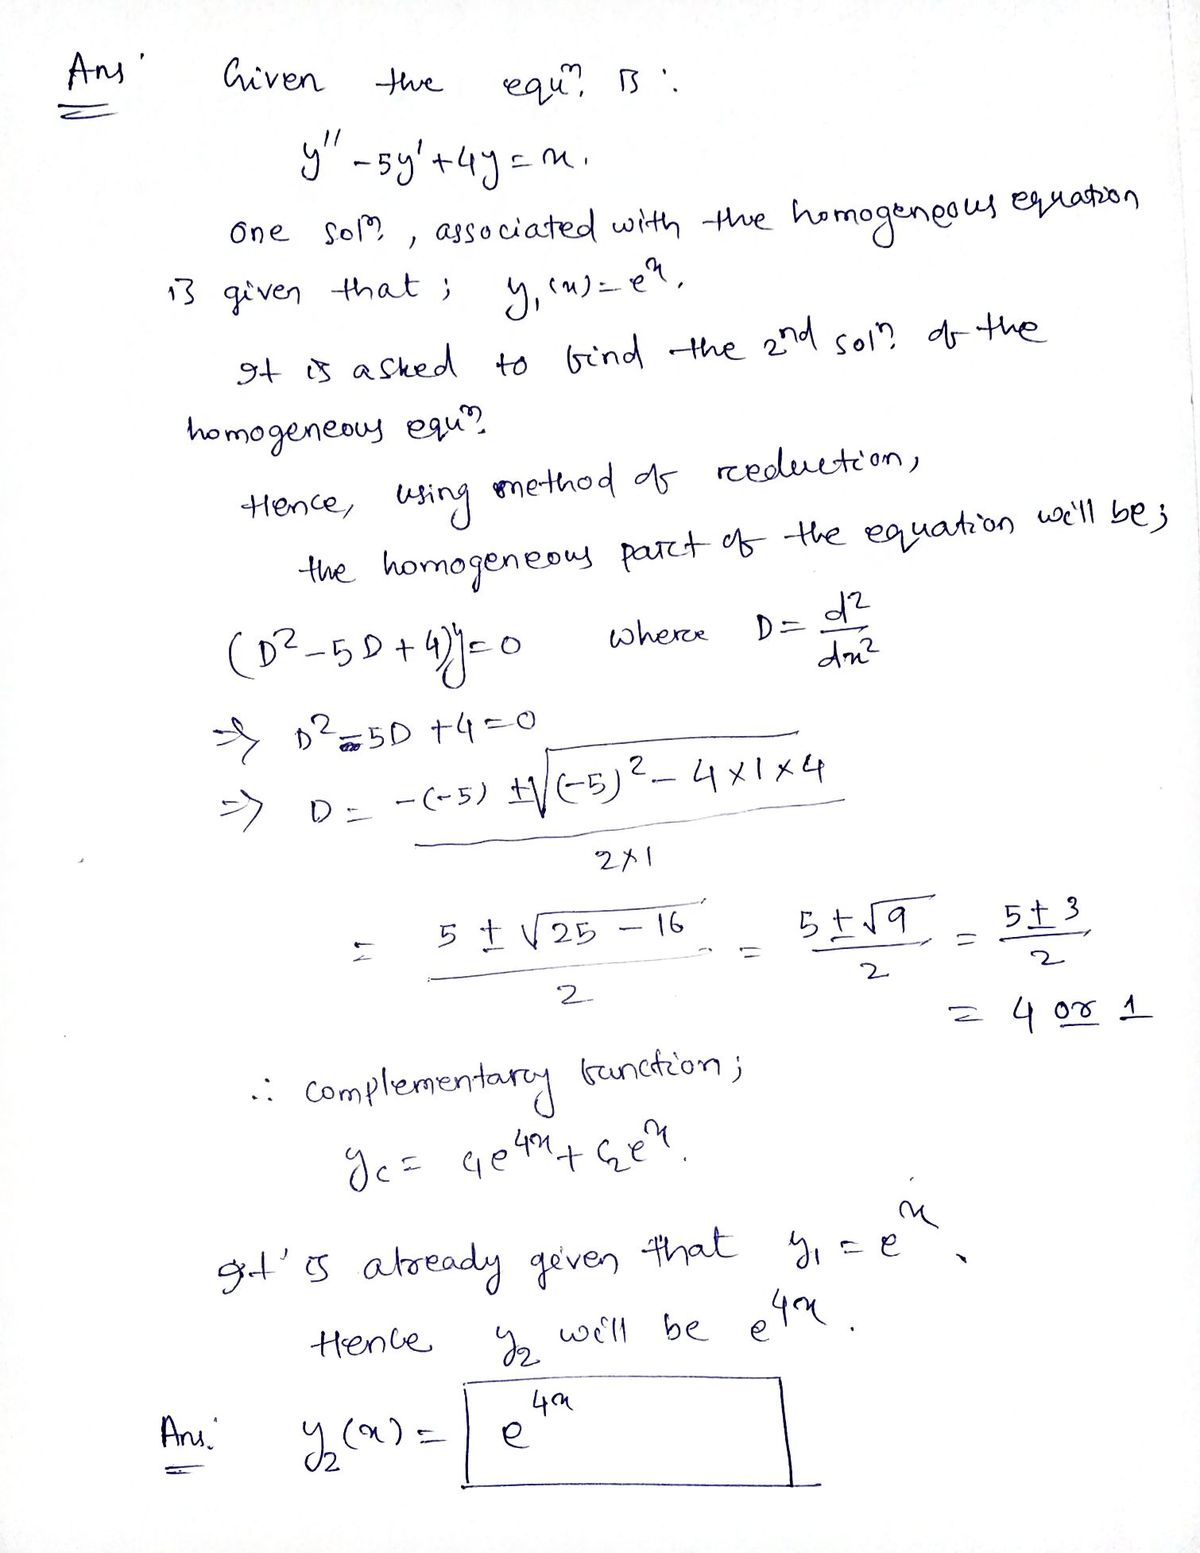 Ans: Given the equⁿ. is :
y'' - 5y' + 4y = x.
One solⁿ, associated with the homogeneous equation
is given that ; y₁(x) = eˣ.
It is asked to find the 2nd solⁿ. of the
homogeneous equⁿ.
Hence, using method of reduction,
the homogeneous part of the equation will be;
(D² - 5D + 4)y = 0 where D = d²/dx²
⇒ D² - 5D + 4 = 0
⇒ D = (-(-5) ± √((-5)² - 4×1×4))/(2×1)
= (5 ± √(25 - 16))/2 = (5 ± √9)/2 = (5 ± 3)/2
= 4 or 1
∴ complementary function;
y_c = c₁e⁴ˣ + c₂eˣ.
It' is already given that y₁ = eˣ.
Hence y₂ will be e⁴ˣ.
Ans: y₂(x) = e⁴ˣ